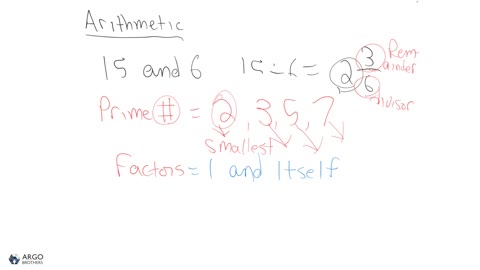 Arithmetic
15 and 6 15 ÷ 6 = 2 3/6 Remainder divisor
Prime # = 2, 3, 5, 7
smallest
Factors = 1 and Itself
ARGO
BROTHERS